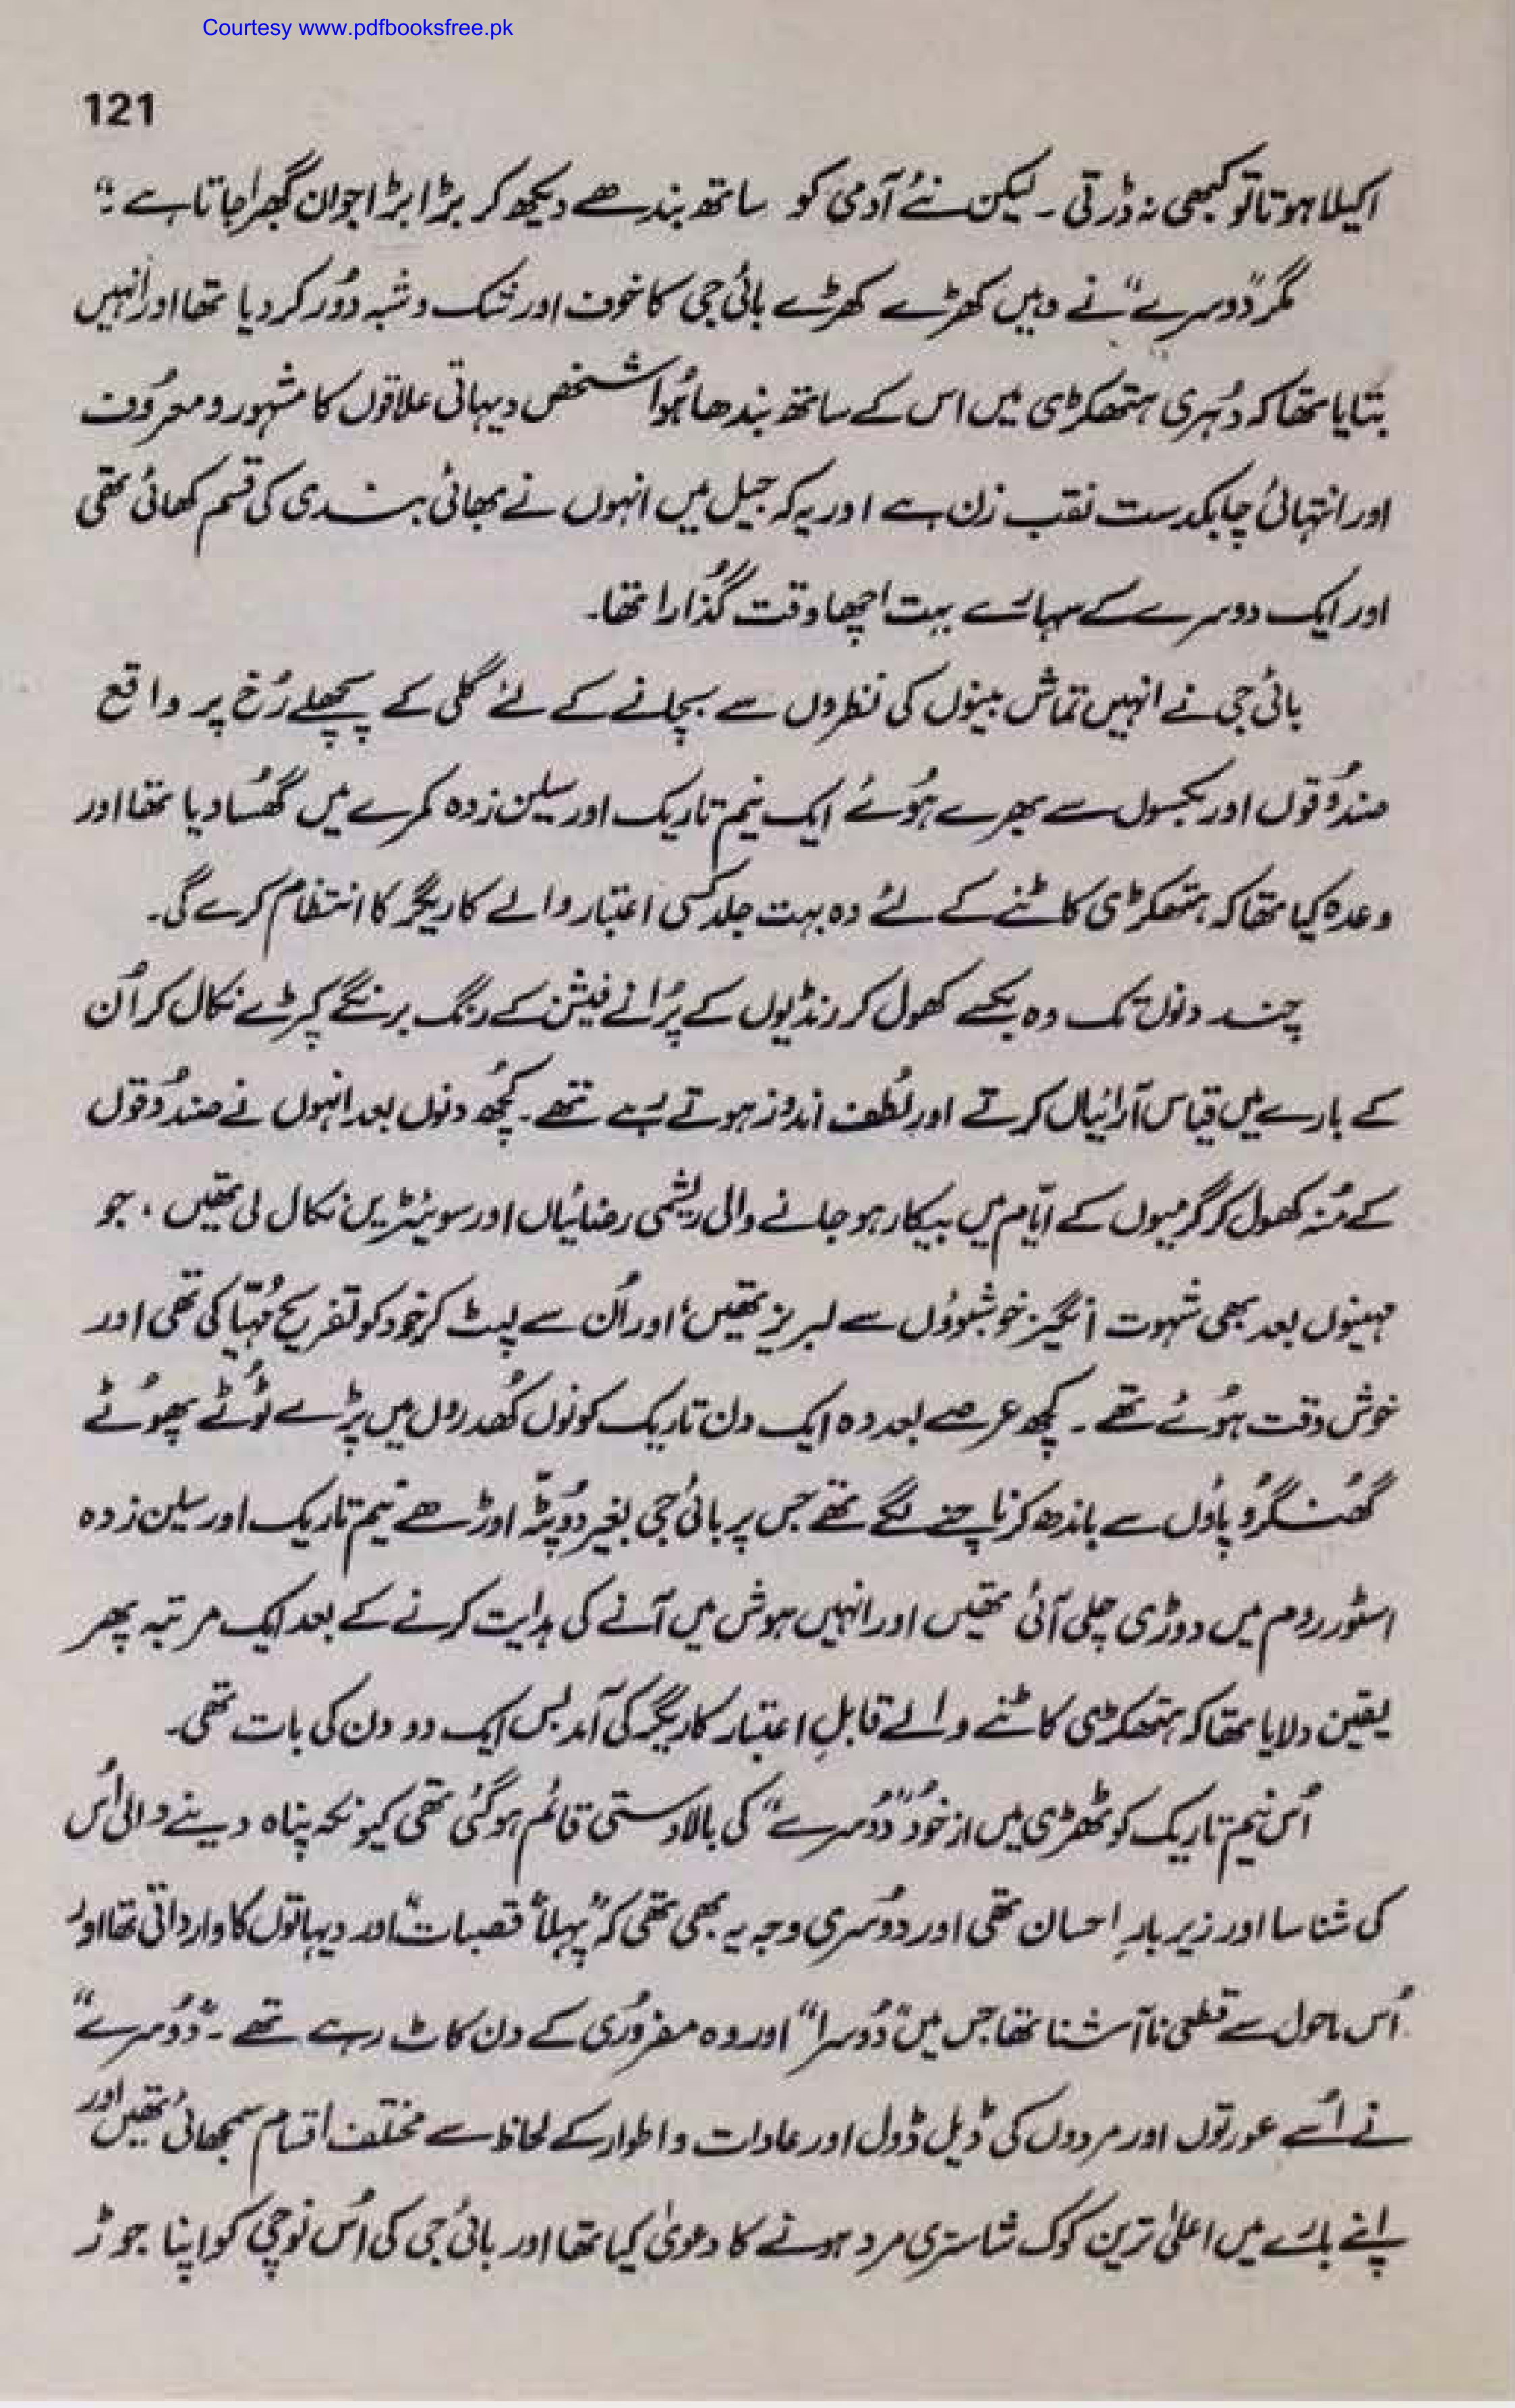 Courtesy www.pdfbooksfree.pk
121
اکیلا ہوتا تو کبھی نہ ڈرتی ۔ لیکن نئے آدمی کو ساتھ بندھے دیکھ کر بڑا بڑا جوان گھبرا جاتا ہے ؛“
مگر ”دوسرے“ نے وہیں کھڑے کھڑے بائی جی کا خوف اور شک و شبہ دُور کر دیا تھا اور انہیں
بتایا تھا کہ دُہری ہتھکڑی میں اس کے ساتھ بندھا ہُوا شخص دیہاتی علاقوں کا مشہور و معرُوف
اور انتہائی چابکدست نقب زن ہے اور یہ کہ جیل میں انہوں نے بھائی بندی کی قسم کھائی تھی
اور ایک دوسرے کے سہارے بہت اچھا وقت گُذارا تھا۔
بائی جی نے انہیں تماش بینوں کی نظروں سے بچانے کے لئے گلی کے پچھلے رُخ پر واقع
صندُوقوں اور بکسوں سے بھرے ہُوئے ایک نیم تاریک اور سیلن زدہ کمرے میں گھُسا دیا تھا اور
وعدہ کیا تھا کہ ہتھکڑی کاٹنے کے لئے وہ بہت جلد کسی اعتبار والے کاریگر کا انتظام کرے گی۔
چند دنوں تک وہ بکسے کھول کر رنڈیوں کے پُرانے فیشن کے رنگ برنگے کپڑے نکال کر اُن
کے بارے میں قیاس آرائیاں کرتے اور لُطف اندوز ہوتے رہے تھے ۔ کچُھ دنوں بعد انہوں نے صندُوقوں
کے مُنہ کھول کر گرمیوں کے ایّام میں بیکار ہو جانے والی ریشمی رضائیاں اور سوئیٹریں نکال لی تھیں ، جو
مہینوں بعد بھی شہوت انگیز خوشبوؤں سے لبریز تھیں، اور اُن سے لپٹ کر خود کو تفریح مُہیّا کی تھی اور
خوش وقت ہُوئے تھے ۔ کچھ عرصے بعد وہ ایک دن تاریک کونوں کُھدروں میں پڑے ٹُوٹے پھوُٹے
گھُنگرُو پاؤں سے باندھ کر ناچنے لگے تھے جس پر بائی جی بغیر دوُپٹّہ اوڑھے نیم تاریک اور سیلن زدہ
اسٹور روم میں دوڑی چلی آئی تھیں اور انہیں ہوش میں آنے کی ہدایت کرنے کے بعد ایک مرتبہ پھر
یقین دلایا تھا کہ ہتھکڑی کاٹنے والے قابلِ اعتبار کاریگر کی آمد بس ایک دو دن کی بات تھی۔
اُس نیم تاریک کوٹھڑی میں از خُود ”دُوسرے“ کی بالادستی قائم ہو گئی تھی کیونکہ پناہ دینے والی اُس
کی شناسا اور زیر بارِ احسان تھی اور دوُسری وجہ یہ بھی تھی کہ ”پہلا“ قصبات اور دیہاتوں کا وارداتی تھا اور
اُس ماحول سے قطعی ناآشنا تھا جس میں ”دُوسرا“ اور وہ مفرُوری کے دن کاٹ رہے تھے ۔ ”دُوسرے“
نے اُسے عورتوں اور مردوں کی ڈیل ڈول اور عادات و اطوار کے لحاظ سے مختلف اقسام سمجھائی تھیں اور
اپنے بارے میں اعلیٰ ترین کوک شاستری مرد ہونے کا دعویٰ کیا تھا اور بائی جی کی اُس نوچی کو اپنا جوڑ